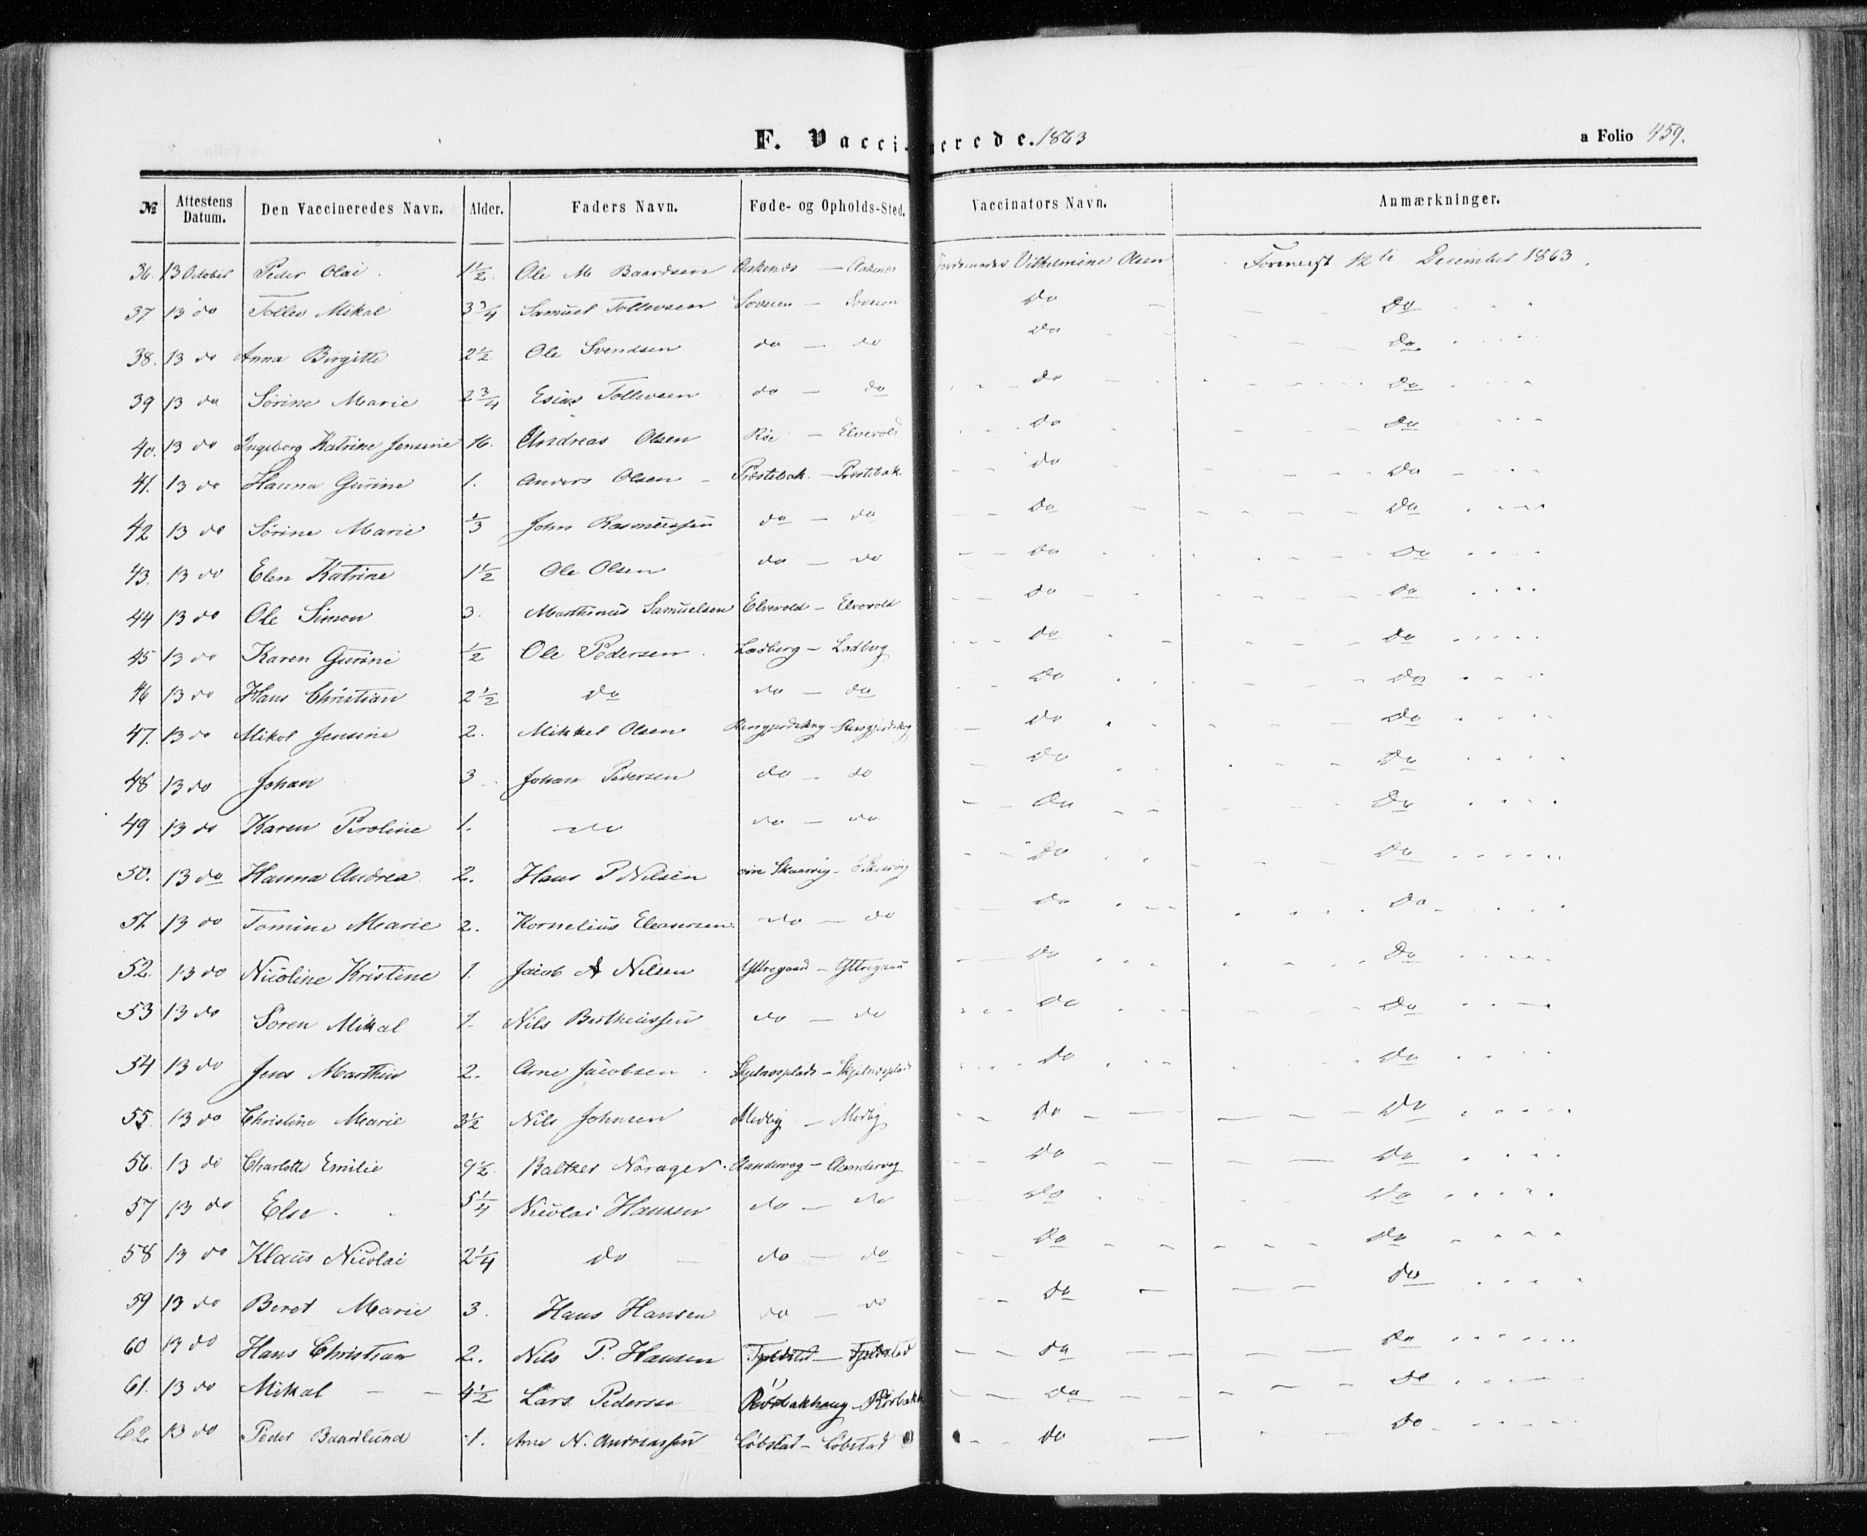 F. Vaccinerede. 1863
a Folio 459.
№ Attestens Datum. Den Vaccineredes Navn. Alder. Faders Navn. Føde- og Opholds-Sted. Vaccinators Navn. Anmærkninger.
36. 13 October Peder Olai. 1½. Ole M Baardsen Vilhelmine Olsen Foreviist 12te December 1863.
37 13 do Tollev Mikal 3¾ Samuel Tollevsen Do Do
38. 13 do Anna Birgitte 2½ Ole Svendsen do - do Do Do
39 13 do Sørine Marie 2¾ Esias Tollevsen do - do Do Do
40. 13 do Ingeborg Katrine Jensine 16. Andreas Olsen Røe - Elvevold Do Do
41. 13 do Hanna Gurine 1. Anders Olsen - Præstebak - Præstebak Do Do
42 13 do Sørine Marie ⅓ John Rasmussen do - do Do Do
43. 13 do Elen Katrine 1½ Ole Olsen do - do Do Do
44 13 do Ole Simon 3. Marthinus Samuelsen Elvevold - Elvevold Do Do
45 13 do Karen Gurine ½ Ole Pedersen. Ladberg - Ladberg Do Do
46 13 do Hans Christian 2½ do do - do Do Do
47. 13 do Mikol Jensine 2. Mikkel Olsen Do Do
48 13 do Johan 3 Johan Pedersen do - do Do Do
49 13 do Karen Peroline 1. do do - do Do Do
50. 13 do Hanna Andrea 2. Hans P Nilsen øvre Skaarvig - Skaarvig Do Do
51 13 do Tomine Marie 2. Kornelius Eleasersen do - do Do Do
52. 13 do Nicoline Kristine 1. Jacob A Nilsen Yttregaard - Yttregaard Do Do
53 13 do Søren Mikal 1. Nils Bertheussen do - do Do Do
54 13 do Jens Marthin 2. Arne Jacobsen. Skjelnesplads - Skjelnesplads Do Do
55. 13 do Christine Marie 3½ Nils Johnsen Medby - Medby Do Do
56. 13 do Charlotte Emilie 9½ Baltzer Norager. Aandervag - Aandervag Do Do
57 13 do Else 5¼ Nicolai Hansen do - do Do Do
58 13 do Klaus Nicolai 2¼ do do - do Do Do
59 13 do Beret Marie 3. Hans Hansen do - do Do Do
60 13 do Hans Christian 2. Nils P. Hansen Do Do
61. 13 do Mikal 4½ Lars Pedersen Do Do
62. 13 do Peder Baardlund 1. Arne N. Andreassen Løbstad - Løbstad Do Do